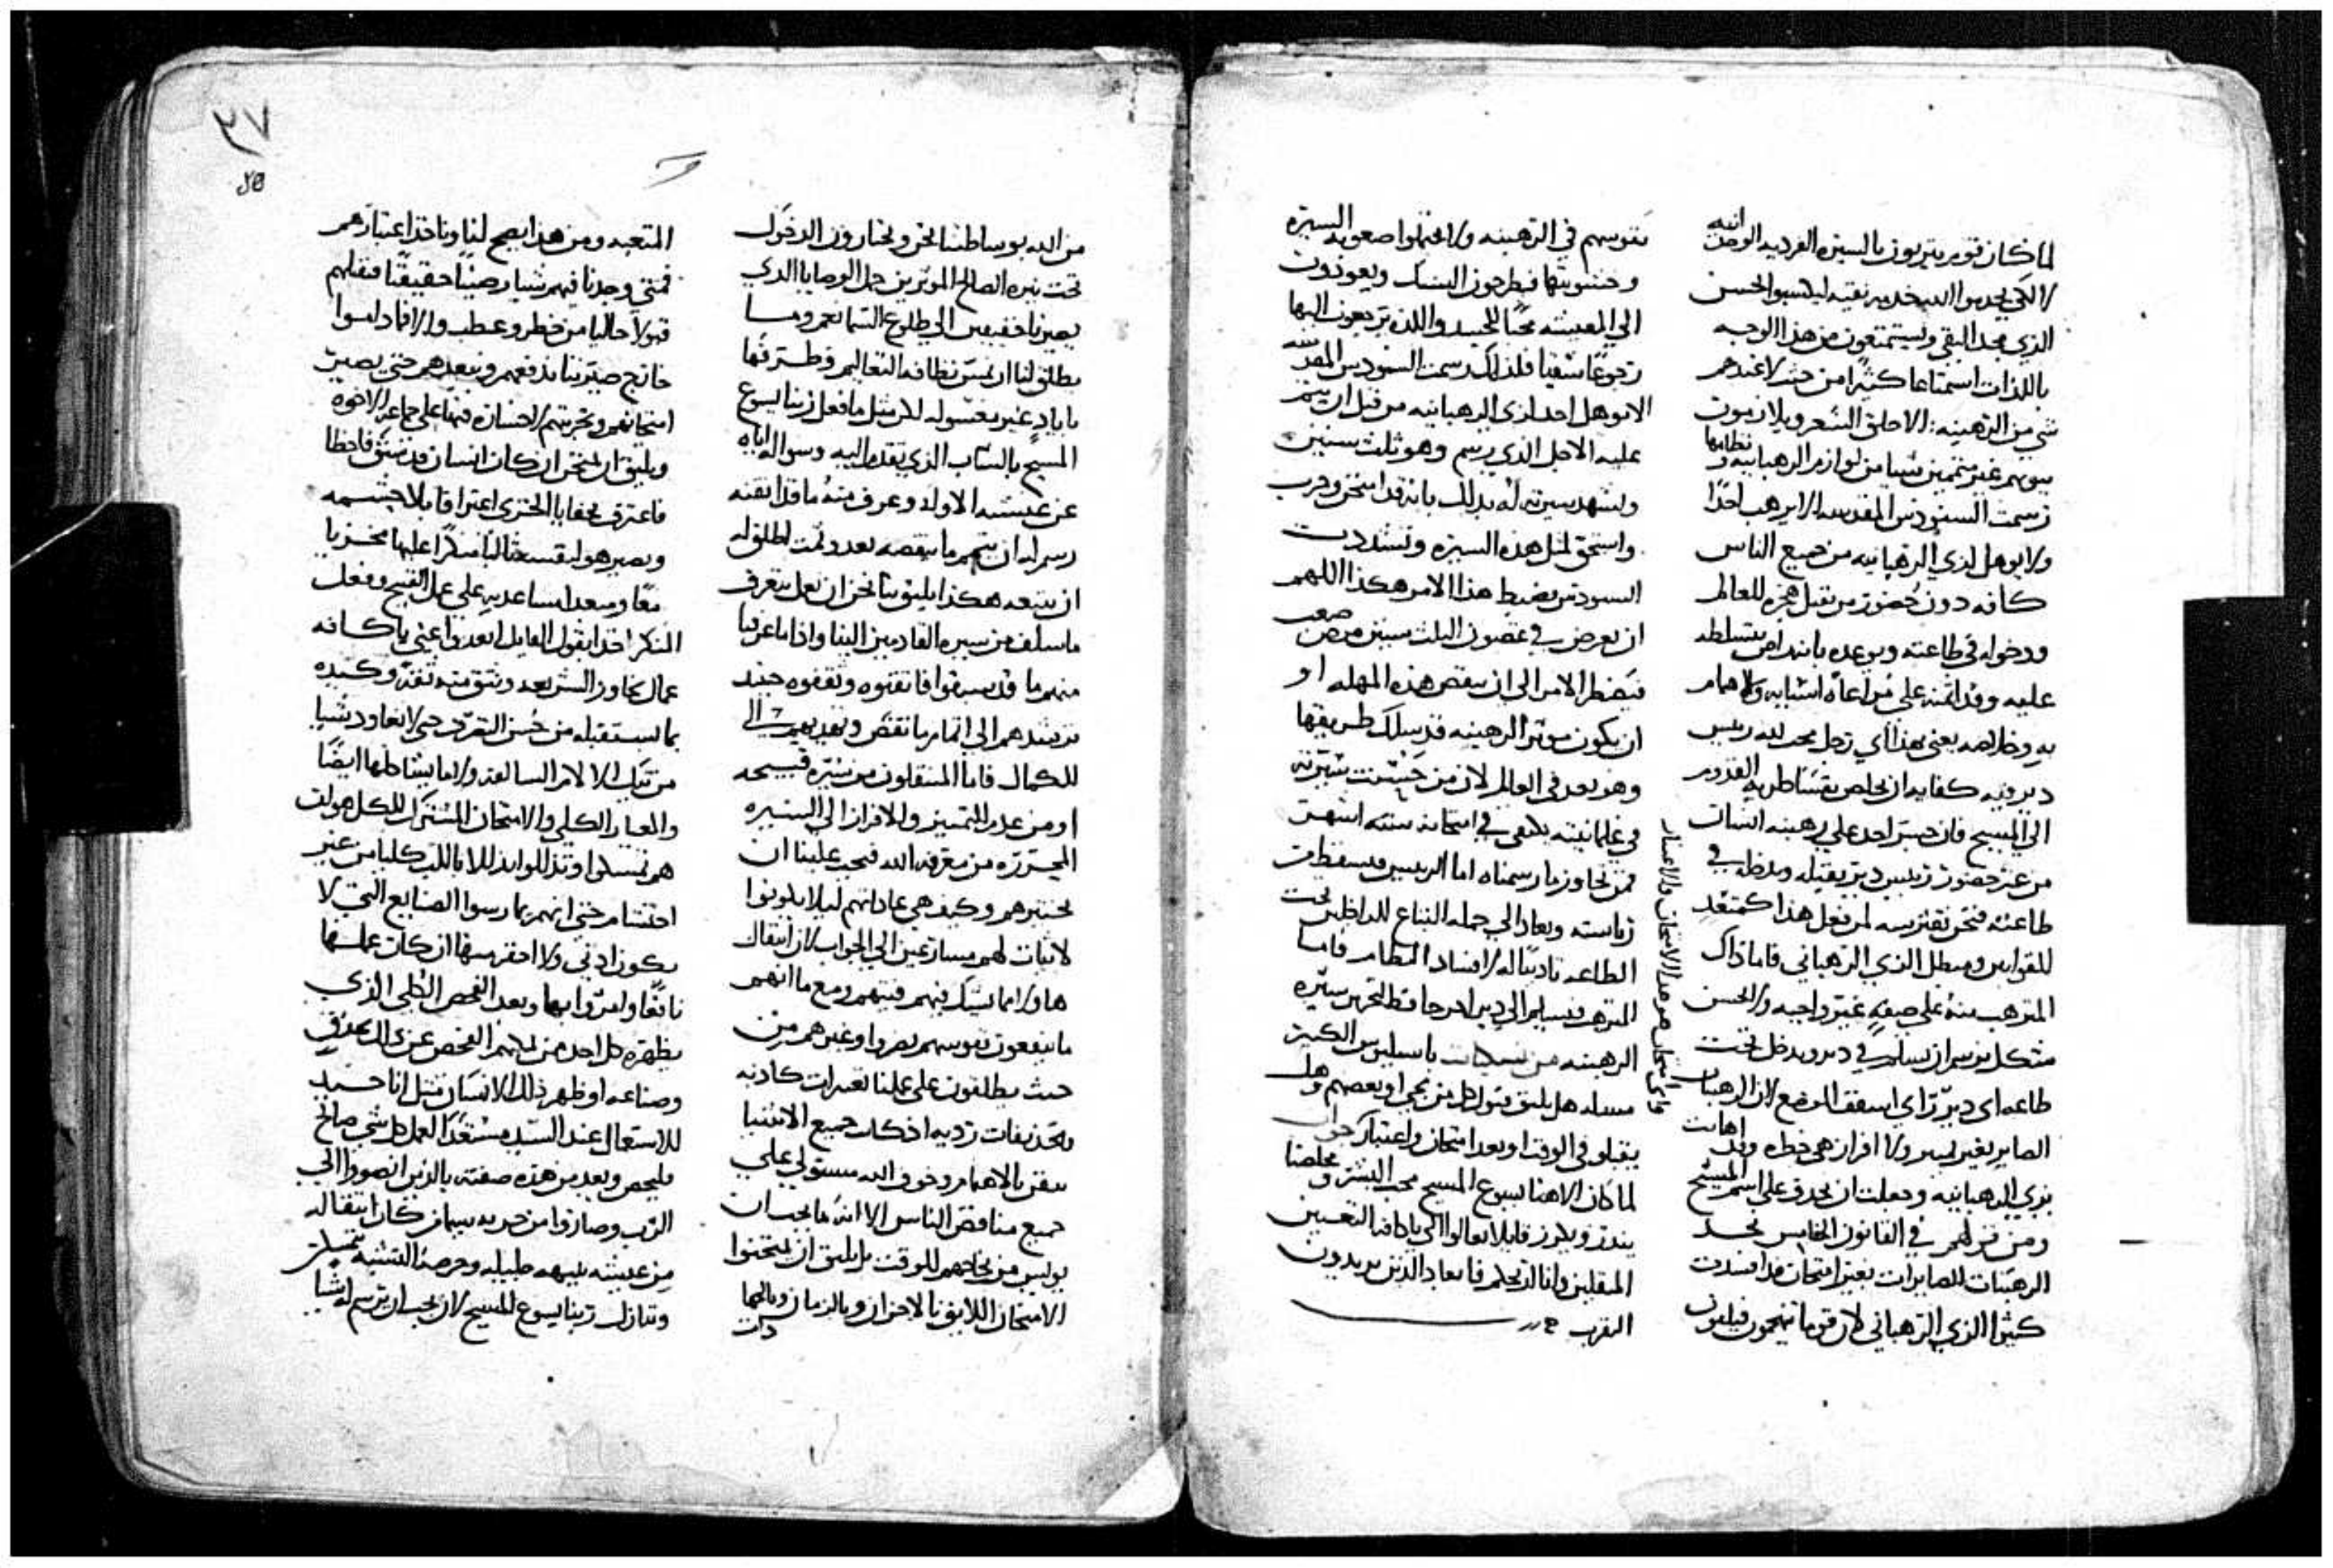 لما كان قوم يتزيون بالسيرة الفرديه الوحدانيه
لا لكي يخدموا الله خدمه نقيه ليكتسبوا الحسن
الذي مجد التقي ويستمتعون من هذا الوجه
باللذات استمتاعا كثيرا من حيث لا عندهم
شي من الرهبنه الا حلق الشعر ويلازمون
بيوتهم غير متممين شيا من لوازم الرهبانيه ونظامها
رسمت السنودس المقدسه الا يرهب احدا
ولا يوهل لزي الرهبانيه من جميع الناس
كافه دون حضور من يقبل هجره للعالم
ودخوله في طاعته ويوعده بانه
عليه وقد ائتمنه على مراعاة اسبابه والاهتمام
به وخلاصه يعني بهذا اي رجل محب لله رييس
دير وفيه كفايه ان يخلص
الي المسيح فان جسر احد على رهبنه انسان
من غير حضور رييس دير يقبله ويدخله في
طاعته فنحن نقترسه لمن فعل هذا كمتعد
للقوانين ومبطل الزي الرهباني فاما ذاك
المترهب منه على صفه غير واجبه ولا حسن
شكل يرسم ان يسلم في دير ويدخل تحت
طاعه اي دير راي اسقف الموضع لان الرهبان
الصاير بغير تمييز ولا افراز هي خطره وقد اهانت
بزي الرهبانيه وجعلت ان يجدف على اسم المسيح
ومن قولهم في القانون الخامس نجد
الرهبنات الصايرات بغير امتحان قد افسدت
كثيرا الزي الرهباني لان قوما يتهجمون فيلقون
نفوسهم في الرهبنه ولا احتملوا صعوبه السيرة
وخشونتها فيطرحون النسك ويعودون
الي المعيشه محبا للجسد واللذه يرجعون اليها
رجوعا شقيا فلذلك رسمت السنودس المقدسه
الا يوهل احد لزي الرهبانيه من قبل ان يتم
عليه الاجل الذي يرسم وهو ثلث سنين
وتشهد سيرته له بذلك بانه قد امتحن وجرب
واستحق لمثل هذه السيره وتشددت
السنودس بضبط هذا الامر هكذا اللهم
ان يعرض في غضون الثلث سنين مرض صعب
فيضطر الامر الي ان ينقص هذه المهله او
ان يكون موثر الرهبنه قد سلك طريقها
وهو بعد في العالم لان من حسنت سيرته
في علمانيته يكتفي في امتحانه سته اشهر
فمن تجاوز ما رسمناه اما الرييس فيسقط من
رياسته ويعاد الي جمله التباع الداخلين تحت
الطاعه تاديبا له لافساد النظام فاما
المترهب فيسلم الي دير اخر حافظ لتحرير سيره
الرهبنه من نسكيات باسليوس الكبير
مساله هل يليق قبول كل من يجي او بعضهم وهل
يقبلو في الوقت او بعد امتحان واعتبار جواب
لما كان الاهنا يسوع المسيح محب البشر ومخلصنا
ينذر ويكرز قايلا تعالوا الي ياكافه التعبين
المثقلين وانا اريحكم فابعاد الذين يريدون
التقرب
كما امتحان هو هذا الامتحان والاعتبار
٢٧
من الله بوساطتنا نحن ويختارون الدخول
تحت نيره الصالح الموثرين حمل الوصايا الذي
يصيرنا خفيفين الي طلوع السما نعم وما
يطلق لنا ان نمس نظافه التعاليم وطهرتها
بايادٍ غير مغسوله لكن مثل ما فعل ربنا يسوع
المسيح بالشاب الذي تقدم اليه وسواله اياه
عن عيشته الاوله وعرف منه ما قد اتقنه
رسم له ان يتمم ما ينقصه بعد وثمت اطلق له
ان يتبعه هكذا يليق بنا نحن ان نعمل نتعرف
ما سلف من سيره القادمين الينا واذا ما عرفنا
منهم ما قد سبقوا فاتقنوه وثقفوه جيد
نرشدهم الي اتمام ما نقص ونقدمهم الي
للكمال فاما المنتقلون من سيره قبيحه
او من عدم التمييز والافراز الي السيره
المحررة من معرفه الله فيجب علينا ان
نختبرهم وكيف هي عاداتهم ليلا يكونوا
لا ثبات لهم مسارعين الي الجواب لان امثال
هاولا مما نشك فيهم فيتهم ومع ما انهم
ما ينفعون نفوسهم يضروا وغيرهم من
حيث يطلقون على عملنا تعيرات كاذبه
وتجديفات رديه اذ كانت جميع الاشيا
تتقن بالاهتمام وخوف الله مستولي علي
جميع مناقص الناس الا انه ما يجب ان
يويس من نجاحهم للوقت بل يليق ان يمتحنوا
الامتحان اللايق بالاحزان وبالزمان وبالجهادات
المتعبه ومن هذا يصح لنا وناخذ اعتبارهم
فمتي وجدنا فيهم شيا رصينا حقيقيا فنقبلهم
قبولا خاليا من خطر وعطب والا فما داموا
خارج صيرتنا ندفعهم ونبعدهم حتي يصير
امتحانهم وتجربتهم لا خساره فيها علي جماعه الاخوه
ويليق ان نمتحن ان كان انسان قد سبق فاخطا
فاعترف بخفايا الخزي اعترافا بلا حشمه
ويصير هو لنفسه ثالبا منكرا عليها مخزيا
معا ومبعدا مساعديه علي عمل القبيح وفعل
المنكر اخذا بقول القايل ابعدوا عني ياكافه
عمال
بما يستقبله من حسن التفرد حتى لا يعاود شيا
من تيك الالام السالفه ولا ما يشاكلها ايضا
والعيار الكلي والامتحان المشترك للكل هو ان
هم تمسكوا وتذللوا بذلا بالكليه من غير
احتشام حتي انهم يمارسوا الصنايع التي لا
يكون ادني ولا احقر منها ان كان عملها
نافعا وليدابها وبعد الفحص الكلي الذي
يظهره كل احد من
وصناعه او ظهر ذلك الانسان مثل انا جيد
للاستعمال عند السيد مستعدا لعمل كل شي صالح
فليحص وبعد من هذه صفته بالذين انضووا الي
الرب وصاروا من حزبه سيما من كان انتقاله
من عيشه بهيه جليله وحرصه التشبه بتمسكن
وتنازل ربنا يسوع المسيح لان يجب ان يرسم له شيا